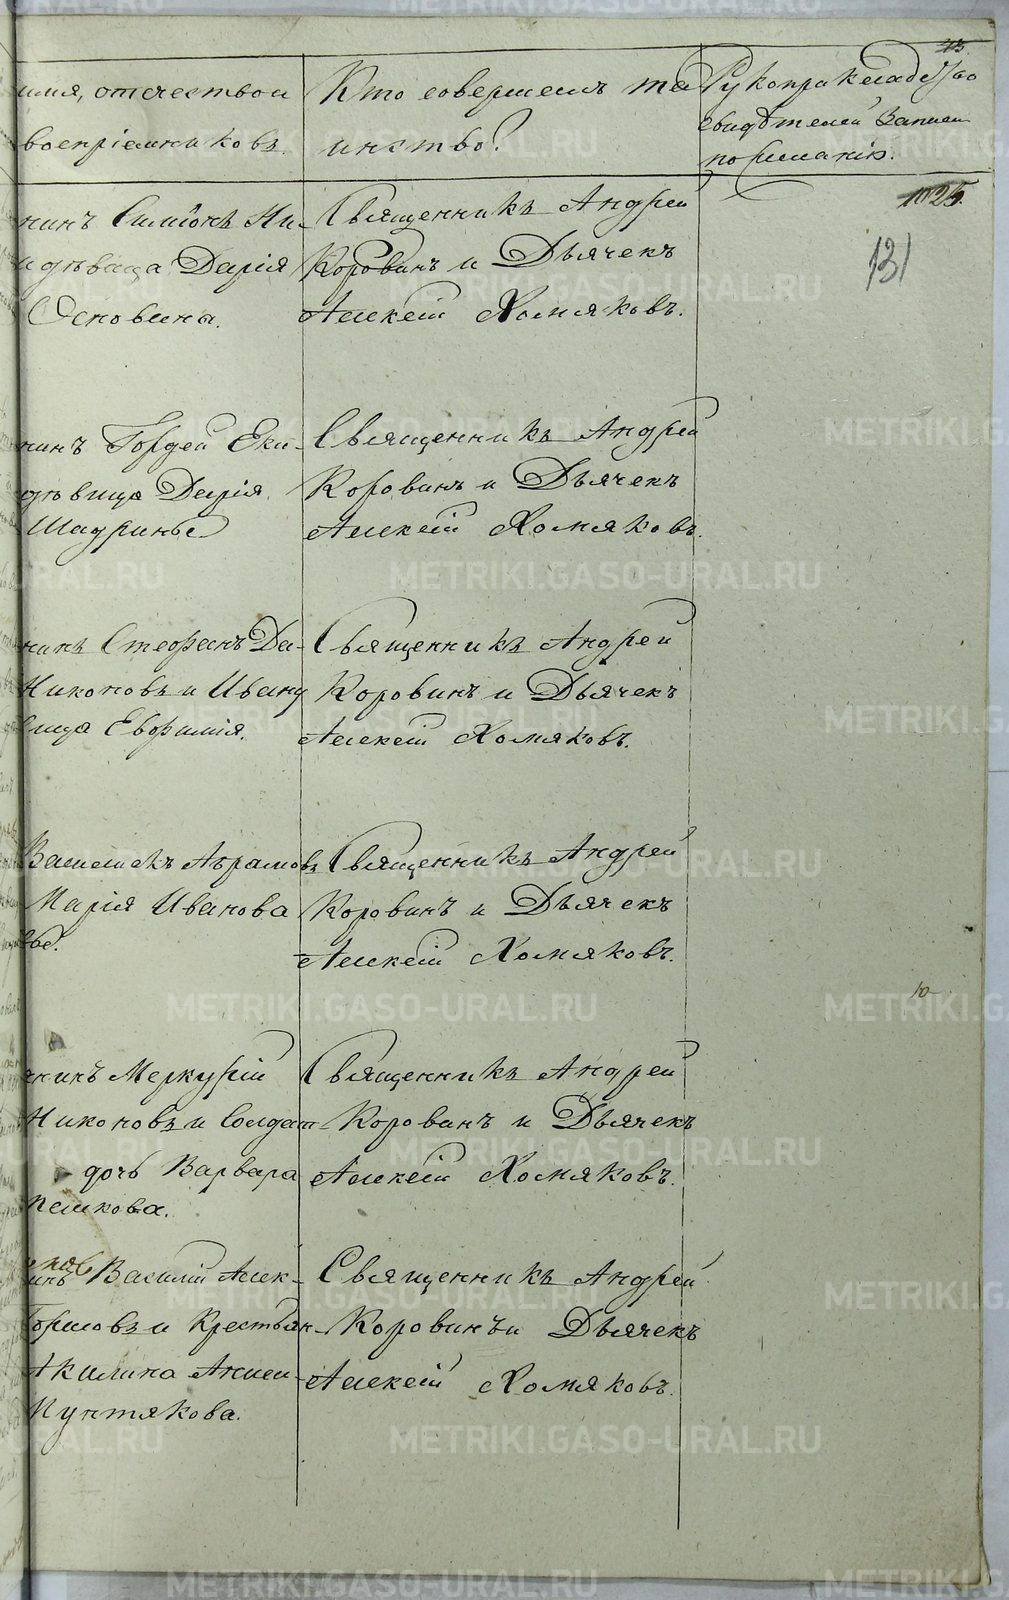 43.
имя, отчество и
воспріемниковъ.
Кто совершалъ та
инство?
Рукоприкладство
свидѣтелей записи
по желанію.
1025.
131
нинъ Симіонъ Ни-
и дѣвица Дарія
Основины.
Священникъ Андрей
Коровинъ и Дьячекъ
Алексій Хомяковъ.
нинъ Гордей Еки-
дѣвица Дарія
Шадрины
Священникъ Андрей
Коровинъ и Дьячекъ
Алексій Хомяковъ.
нинъ Стефанъ Да-
Никоновъ и Ивану
вица Евфимія.
Священникъ Андрей
Коровинъ и Дьячекъ
Алексій Хомяковъ.
Абрамовъ
Марія Иванова
вы.
Священникъ Андрей
Коровинъ и Дьячекъ
Алексій Хомяковъ.
10
нинъ Меркурій
Никоновъ и Солдат-
дочь Варвара
Пешкова.
Священникъ Андрей
Коровинъ и Дьячекъ
Алексій Хомяковъ.
инъ Василій Алек-
Горловъ и Крестьян-
Акилина Алексѣ-
Пунтякова.
Священникъ Андрей
Коровинъ и Дьячекъ
Алексій Хомяковъ.
METRIKI.GASO-URAL.RU